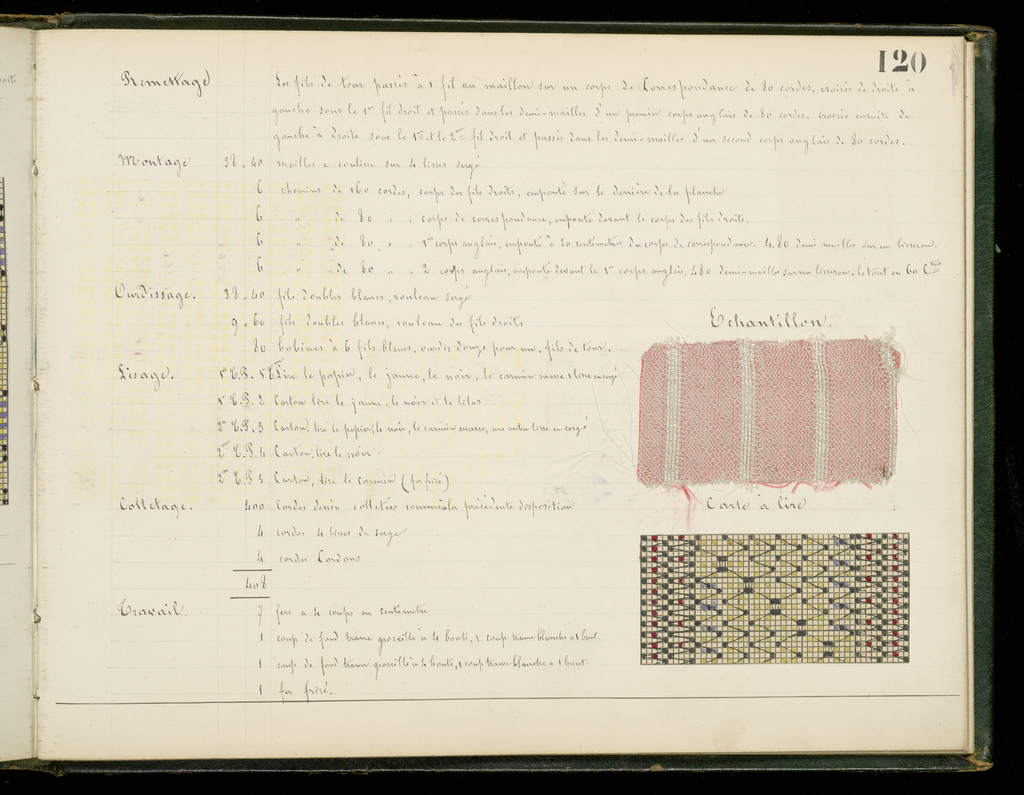 120
Remettage Les fils de tour passés à 1 fil au maillon sur un corps de Correspondance de 80 cordes, croisés de droite à
gauche sous le 1er fil droit et passés dans les demi-mailles d'un premier corps anglais de 80 cordes. croisés ensuite de
gauche à droite sous le 1er et le 2me fil droit et passés dans les demi-mailles d'un second corps anglais de 80 cordes.
Montage 38.40 mailles à coulisse sur 4 lisses sergé
6 chemins de 160 cordes, corps des fils droits, empouté sur le derrière de la planche
6 " de 80 " . corps de correspondance, empouté devant le corps des fils droits.
6 " de 80 " . 1er corps anglais, empouté à 20 centimètres du corps de correspondance. 4.80 demi mailles sur un lisseron.
6 " de 80 " . 2 corps anglais, empouté devant le 1er corps anglais, 480 demi-mailles sur un lisseron. le tout en 60 Cmes
Ourdissage. 38.40 fils doubles blancs, rouleau sergé
9.60 fils doubles blancs, rouleau des fils droits
80 bobines à 6 fils blancs, ourdis douze pour un. fils de tour.
Echantillon.
Lisage. 1er C.P. 1 Lire le papier, le jaune, le noir, le carmin masse 1 lisse en sergé
1er C.P. 2 Carton lire le jaune, le noir et le lilas
2me C.P. 3 Carton, lire le papier, le noir, le carmin masse, une autre lisse en sergé
2me C.P. 4 Carton, lire le noir.
2me C.P. 5 Carton, lire le carmin (fer frisé)
Colletage. 400 Cordes dessin colletées comme à la précédente disposition
Carte à lire
4 cordes 4 lisses de sergé
4 cordes Cordons
408
Travail. 7 fers à 4 coups au centimètre
1 coup de fond trame groseille à 4 bouts, 1 coup trame blanche à 1 bout.
1 coup de fond trame groseille à 4 bouts, 1 coup trame blanche à 1 bout.
1 fer frisé.